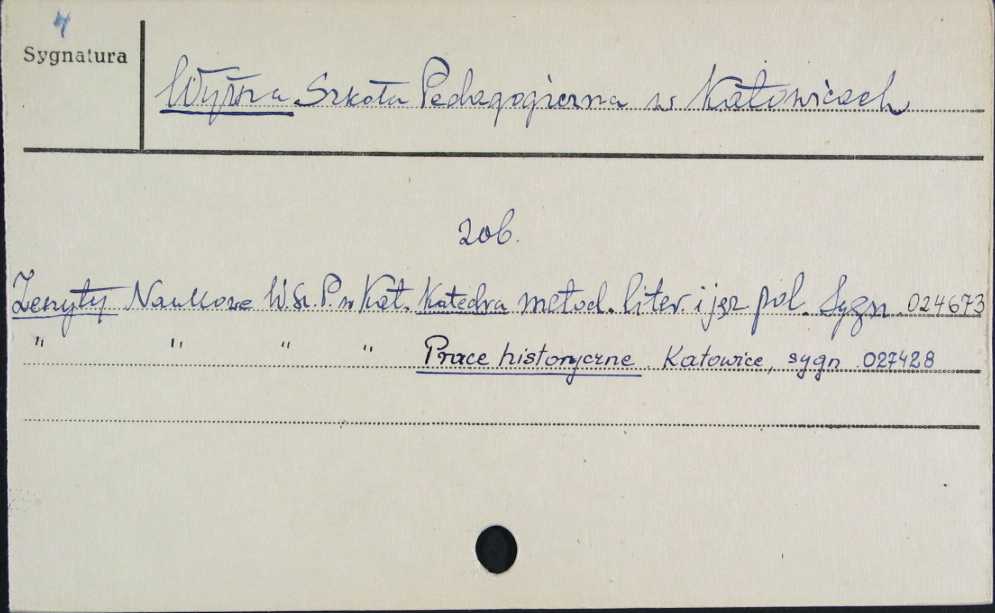 4
Sygnatura
Wyższa Szkoła Pedagogiczna w Katowicach
zob.
Zeszyty Naukowe W.Sz.P. w Kat. Katedra metod. liter. i jęz. pol. Sygn. 024673
" " " " Prace historyczne. Katowice, sygn. 027428